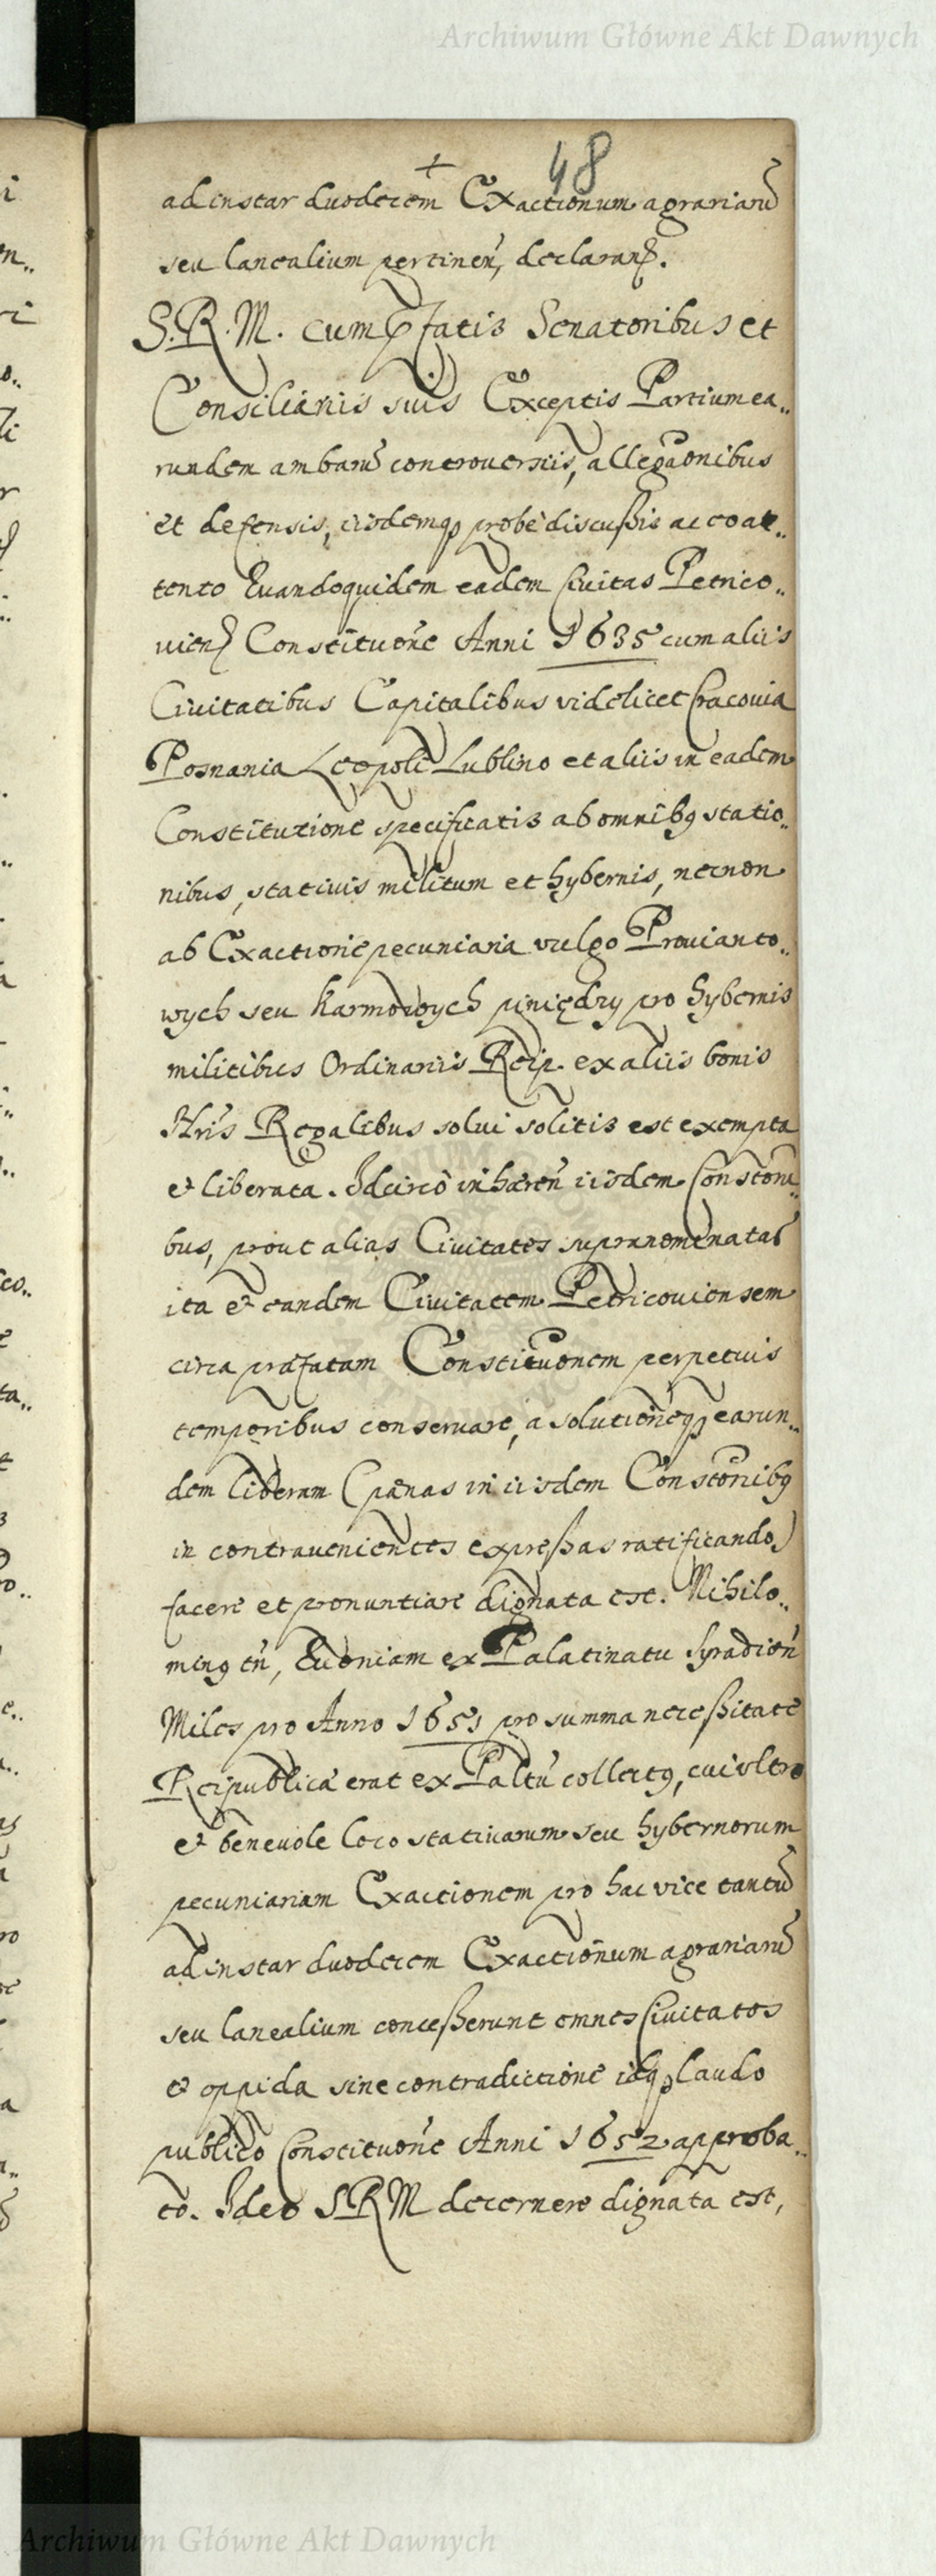 Archiwum Główne Akt Dawnych
48
ad instar duodecem Exactionum agrariarũ
seu lanealium pertineñ, declarans.
S. R. M. cum pfatis Senatoribus et
Consiliariis suis Exceptis Partium ea..
rundem ambarũ controversiis, allegaonibus
et defensis, iisdemq probè discussis ac coat..
tento Quandoquidem eadem Civitas Petrico..
vien Constituoñe Anni 1635 cum aliis
Civitatibus Capitalibus videlicet Cracovia
Posnania Leopoli Lublino et aliis in eadem
Constitutione specificatis ab omnibq statio..
nibus, stativis militum et hybernis, necnon
ab Exactione pecuniaria vulgo Provianto..
wych seu karmowych piniędzy pro hybernis
militibus Ordinariis Reip. ex aliis bonis
Nris Regalibus solvi solitis est exempta
et liberata. Idcircò inhæreñ iisdem Constoni..
bus, prout alias Civitates supranomenatas
ita et eandem Civitatem Petricoviensem
circa præfatam Constituonem perpetuis
temporibus conservare, a solutioneq earun..
dem liberam (pænas in iisdem Constonibq
in contravenientes expressas ratificando)
facere et pronuntiare dignata est. Nihilo..
minq tñ, Quoniam ex Palatinatu Syradieñ
Miles pro Anno 1651 pro summa necessitate
Reipublicæ erat ex Paltũ collectq, cui ultro
et benevole loco stativarum seu hybernorum
pecuniariam Exactionem pro hac vice tantũ
ad instar duodecem Exactionum agrariarũ
seu lanealium concesserunt omnes Civitates
et oppida sine contradictione idq laudo
publico Constituoñe Anni 1652 approba..
to. Ideo SRM decernere dignata est,
Archiwum Główne Akt Dawnych